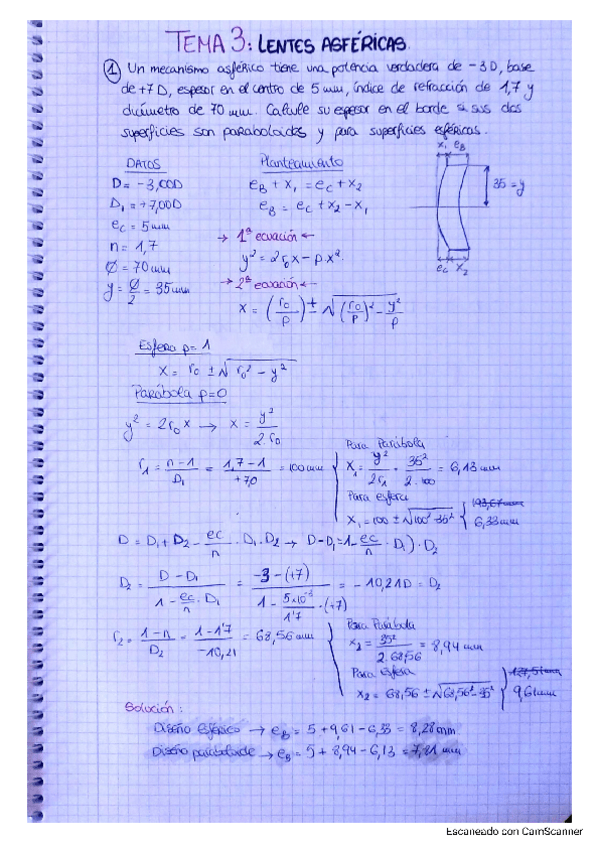 TEMA 3: LENTES ASFÉRICAS.
① Un mecanismo asférico tiene una potencia verdadera de -3D, base
de +7D, espesor en el centro de 5 mm, índice de refracción de 1,7 y
diámetro de 70 mm. Calcule su espesor en el borde si sus dos
superficies son paraboloides y para superficies esféricas.
DATOS
D = -3,00D
D₁ = +7,00D
ec = 5mm
n = 1,7
Ø = 70mm
y = Ø/2 = 35mm
Planteamiento
eB + x₁ = ec + x₂
eB = ec + x₂ - x₁
→ 1ª ecuación ←
y² = 2r₀x - p.x².
→ 2ª ecuación ←
x = (r₀/p) ± √((r₀/p)² - y²/p)
x₁ eB
35 = y
ec x₂
Esfera p = 1
x = r₀ ± √(r₀² - y²)
Parábola p=0
y² = 2r₀x → x = y²/2.r₀
r₁ = n-1/D₁ = 1,7-1/+7,0 = 100mm
Para Parábola
x₁ = y²/2r₁ = 35²/2.100 = 6,13 mm
Para esfera
x₁ = 100 ± √(100²-35²) 193,67mm
6,33mm
D = D₁ + D₂ - ec/n . D₁.D₂ → D-D₁ = 1 - ec/n . D₁) . D₂
D₂ = D - D₁/1 - ec/n . D₁ = -3-(+7)/1 - 5x10⁻³/1'7 .(+7) = -10,21D = D₂
r₂ = 1-n/D₂ = 1-1'7/-10,21 = 68,56mm
Para Parábola
x₂ = 35²/2.68,56 = 8,94 mm
Para esfera
x₂ = 68,56 ± √(68,56²-35²) 127,51mm
9,61mm
Solución:
Diseño esférico → eB = 5 + 9,61 - 6,33 = 8,28mm
Diseño paraboloide → eB = 5 + 8,94 - 6,13 = 7,81 mm
Escaneado con CamScanner